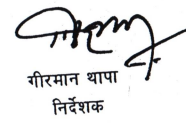 गीरमान थापा
निर्देशक